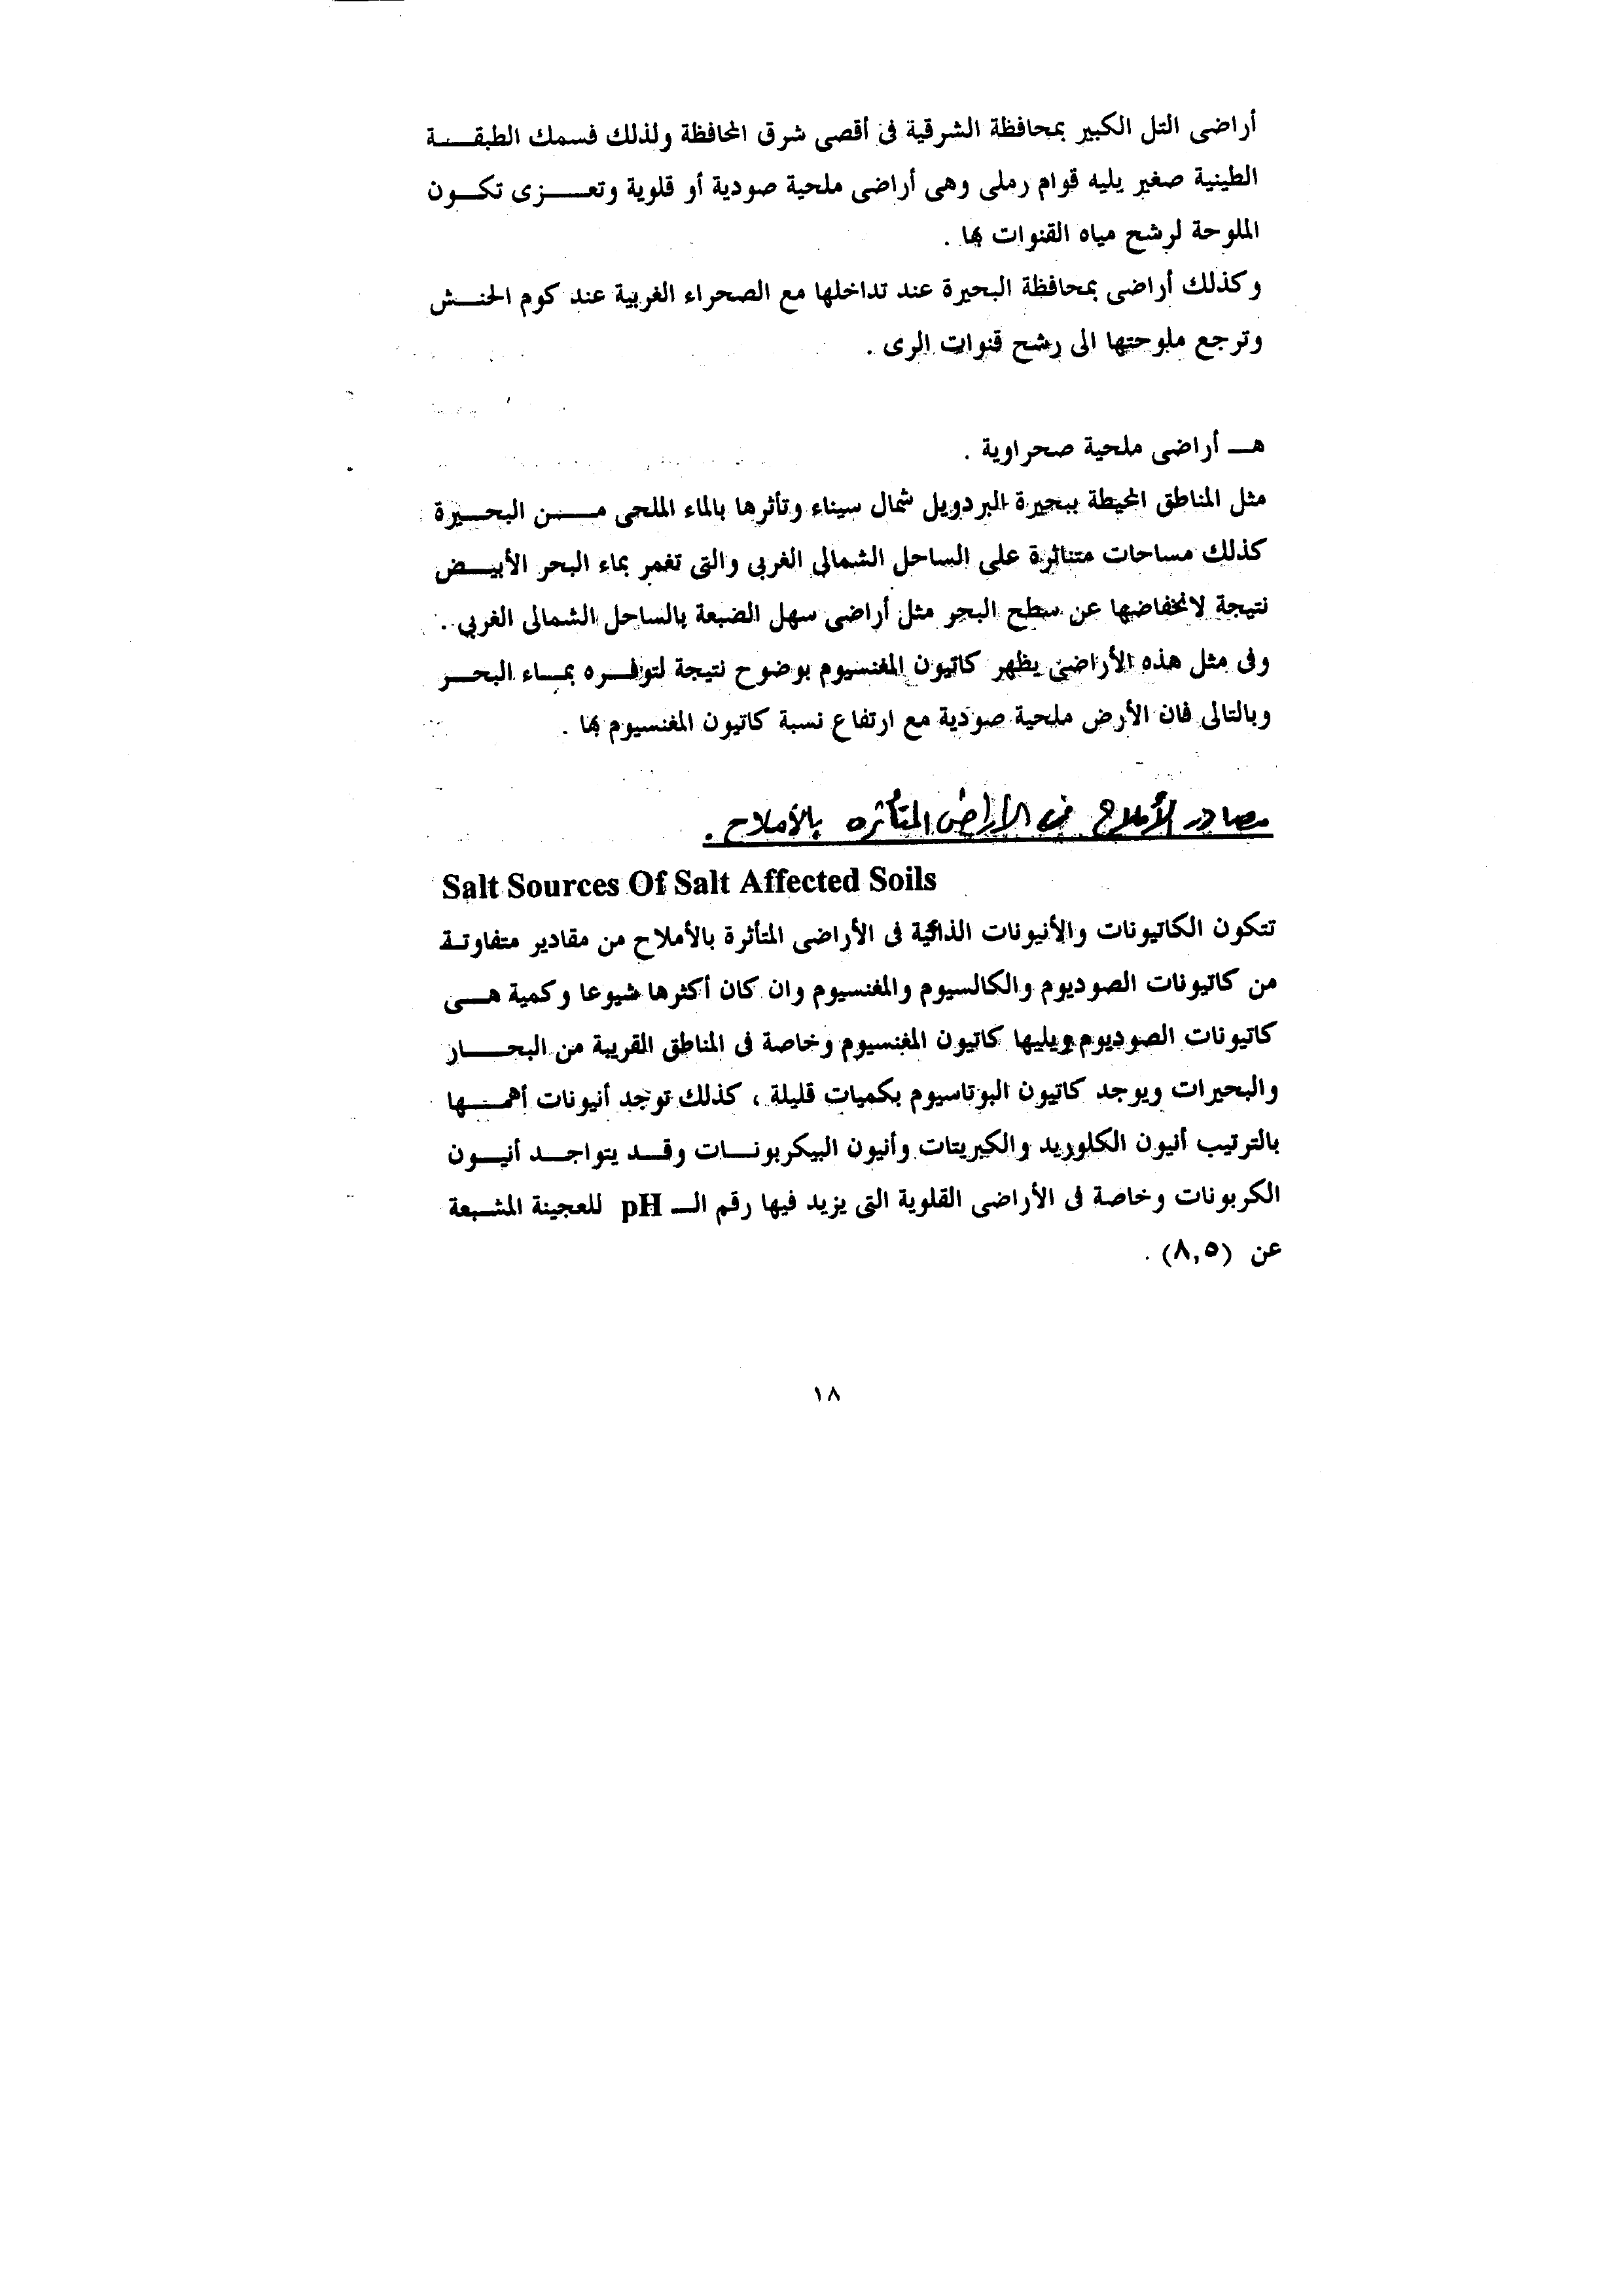 أراضى التل الكبير بمحافظة الشرقية فى أقصى شرق المحافظة ولذلك فسمك الطبقة
الطينية صغير يليه قوام رملى وهى أراضى ملحية صودية أو قلوية وتعزى تكون
الملوحة لرشح مياه القنوات بها .
وكذلك أراضى بمحافظة البحيرة عند تداخلها مع الصحراء الغربية عند كوم الحنش
وترجع ملوحتها الى رشح قنوات الرى .
هـ أراضى ملحية صحراوية .
مثل المناطق المحيطة ببحيرة البردويل شمال سيناء وتأثرها بالماء الملحى من البحيرة
كذلك مساحات متناثرة على الساحل الشمالى الغربى والتى تغمر بماء البحر الأبيض
نتيجة لانخفاضها عن سطح البحر مثل أراضى سهل الضبعة بالساحل الشمالى الغربى .
وفى مثل هذه الأراضى يظهر كاتيون المغنسيوم بوضوح نتيجة لتوفره بماء البحر
وبالتالى فان الأرض ملحية صودية مع ارتفاع نسبة كاتيون المغنسيوم بها .
مصادر الأملاح فى الأراضى المتأثره بالأملاح .
Salt Sources Of Salt Affected Soils
تتكون الكاتيونات والأنيونات الذائبة فى الأراضى المتأثرة بالأملاح من مقادير متفاوتة
من كاتيونات الصوديوم والكالسيوم والمغنسيوم وان كان أكثرها شيوعا وكمية هى
كاتيونات الصوديوم ويليها كاتيون المغنسيوم وخاصة فى المناطق القريبة من البحار
والبحيرات ويوجد كاتيون البوتاسيوم بكميات قليلة ، كذلك توجد أنيونات أهمها
بالترتيب أنيون الكلوريد والكبريتات وأنيون البيكربونات وقد يتواجد أنيون
الكربونات وخاصة فى الأراضى القلوية التى يزيد فيها رقم الـ pH للعجينة المشبعة
عن (٨,٥) .
١٨